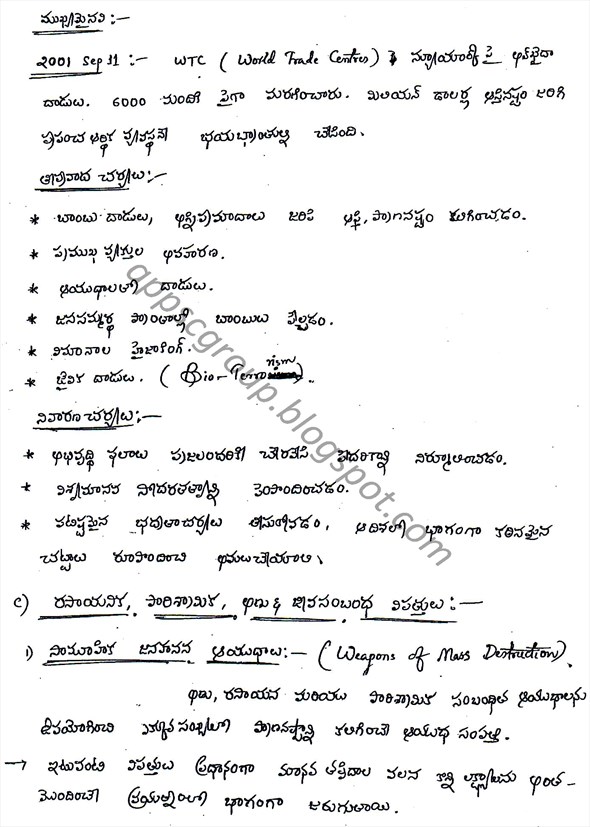 ముఖ్యమైనవి :-
2001 Sep 11 :- WTC ( World Trade Centre) న్యూయార్క్ పై అల్‌ఖైదా
దాడులు. 6000 మంది పైగా మరణించారు. మిలియన్ డాలర్ల ఆస్తినష్టం జరిగి
ప్రపంచ ఆర్థిక వ్యవస్థనే భయభ్రాంతుల్ని చేసింది.
తీవ్రవాద చర్యలు :-
* బాంబు దాడులు, అగ్నిప్రమాదాలు జరిపి ఆస్తి, ప్రాణనష్టం కలిగించడం.
* ప్రముఖ వ్యక్తుల అపహరణ.
* ఆయుధాలతో దాడులు.
* జనసమ్మర్థ ప్రాంతాల్లో బాంబులు పేల్చడం.
* విమానాల హైజాకింగ్.
* జైవిక దాడులు. ( Bio-Terrorism).
నివారణ చర్యలు :-
* అభివృద్ధి ఫలాలు ప్రజలందరికీ చేరవేసి పేదరికాన్ని నిర్మూలించడం.
* విశ్వమానవ సోదరతత్వాన్ని పెంపొందించడం.
* పటిష్టమైన భద్రతాచర్యలు తీసుకోవడం, ఆ దిశలో భాగంగా కఠినమైన
చట్టాలు రూపొందించి అమలుచేయాలి.
c) రసాయనిక, పారిశ్రామిక, అణు & జీవసంబంధ విపత్తులు :-
1) సామూహిక జనహనన ఆయుధాలు :- (Weapons of Mass Destruction).
అణు, రసాయన మరియు పారిశ్రామిక సంబంధిత ఆయుధాలను
ఉపయోగించి ఎక్కువ సంఖ్యలో ప్రాణనష్టాన్ని కలిగించే ఆయుధ సంపత్తి.
→ ఇటువంటి విపత్తులు ప్రధానంగా మానవ తప్పిదాల వలన కొన్ని లక్ష్యాలను అంత-
మొందించే ప్రయత్నంలో భాగంగా జరుగుతాయి.
appscgroup.blogspot.com